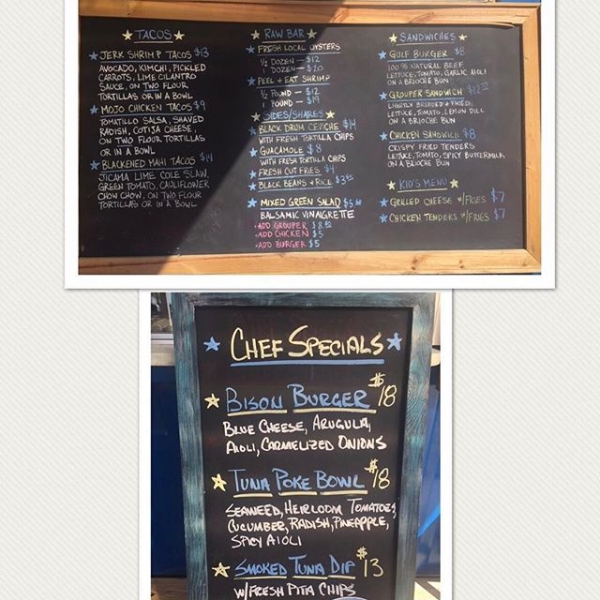 TACOS
JERK SHRIMP TACOS $13
AVOCADO, KIMCHI, PICKLED
CARROTS, LIME CILANTRO
SAUCE, ON TWO FLOUR
TORTILLAS OR IN A BOWL
MOJO CHICKEN TACOS $9
TOMATILLO SALSA, SHAVED
RADISH, COTIJA CHEESE,
ON TWO FLOUR TORTILLAS
OR IN A BOWL
BLACKENED MAHI TACOS $14
JICAMA LIME COLE SLAW,
GREEN TOMATO, CAULIFLOWER
CHOW CHOW, ON TWO FLOUR
TORTILLAS OR IN A BOWL
RAW BAR
FRESH LOCAL OYSTERS
½ DOZEN — $12
1 DOZEN — $20
PEEL + EAT SHRIMP
½ POUND — $12
1 POUND — $19
SIDES/SHARES
BLACK DRUM CEVICHE $14
WITH FRESH TORTILLA CHIPS
GUACAMOLE $8
WITH FRESH TORTILLA CHIPS
FRESH CUT FRIES $4
BLACK BEANS + RICE
MIXED GREEN SALAD
BALSAMIC VINAIGRETTE
+ADD GROUPER
+ADD CHICKEN $5
+ADD BURGER $5
SANDWICHES
GULF BURGER $8
100% NATURAL BEEF
LETTUCE, TOMATO, GARLIC AIOLI
ON A BRIOCHE BUN
GROUPER SANDWICH
LIGHTLY BREADED + FRIED,
LETTUCE, TOMATO, LEMON DILL
ON A BRIOCHE BUN
CHICKEN SANDWICH $8
CRISPY FRIED TENDERS
LETUCE, TOMATO, SPICY BUTTERMILK
ON A BRIOCHE BUN
KID'S MENU
GRILLED CHEESE W/FRIES $7
CHICKEN TENDERS W/FRIES $7
CHEF SPECIALS
BISON BURGER $18
BLUE CHEESE, ARUGULA,
AIOLI, CARMELIZED ONIONS
TUNA POKE BOWL $18
SEAWEED, HEIRLOOM TOMATOES,
CUCUMBER, RADISH, PINEAPPLE,
SPICY AIOLI
SMOKED TUNA DIP $13
W/FRESH PITA CHIPS